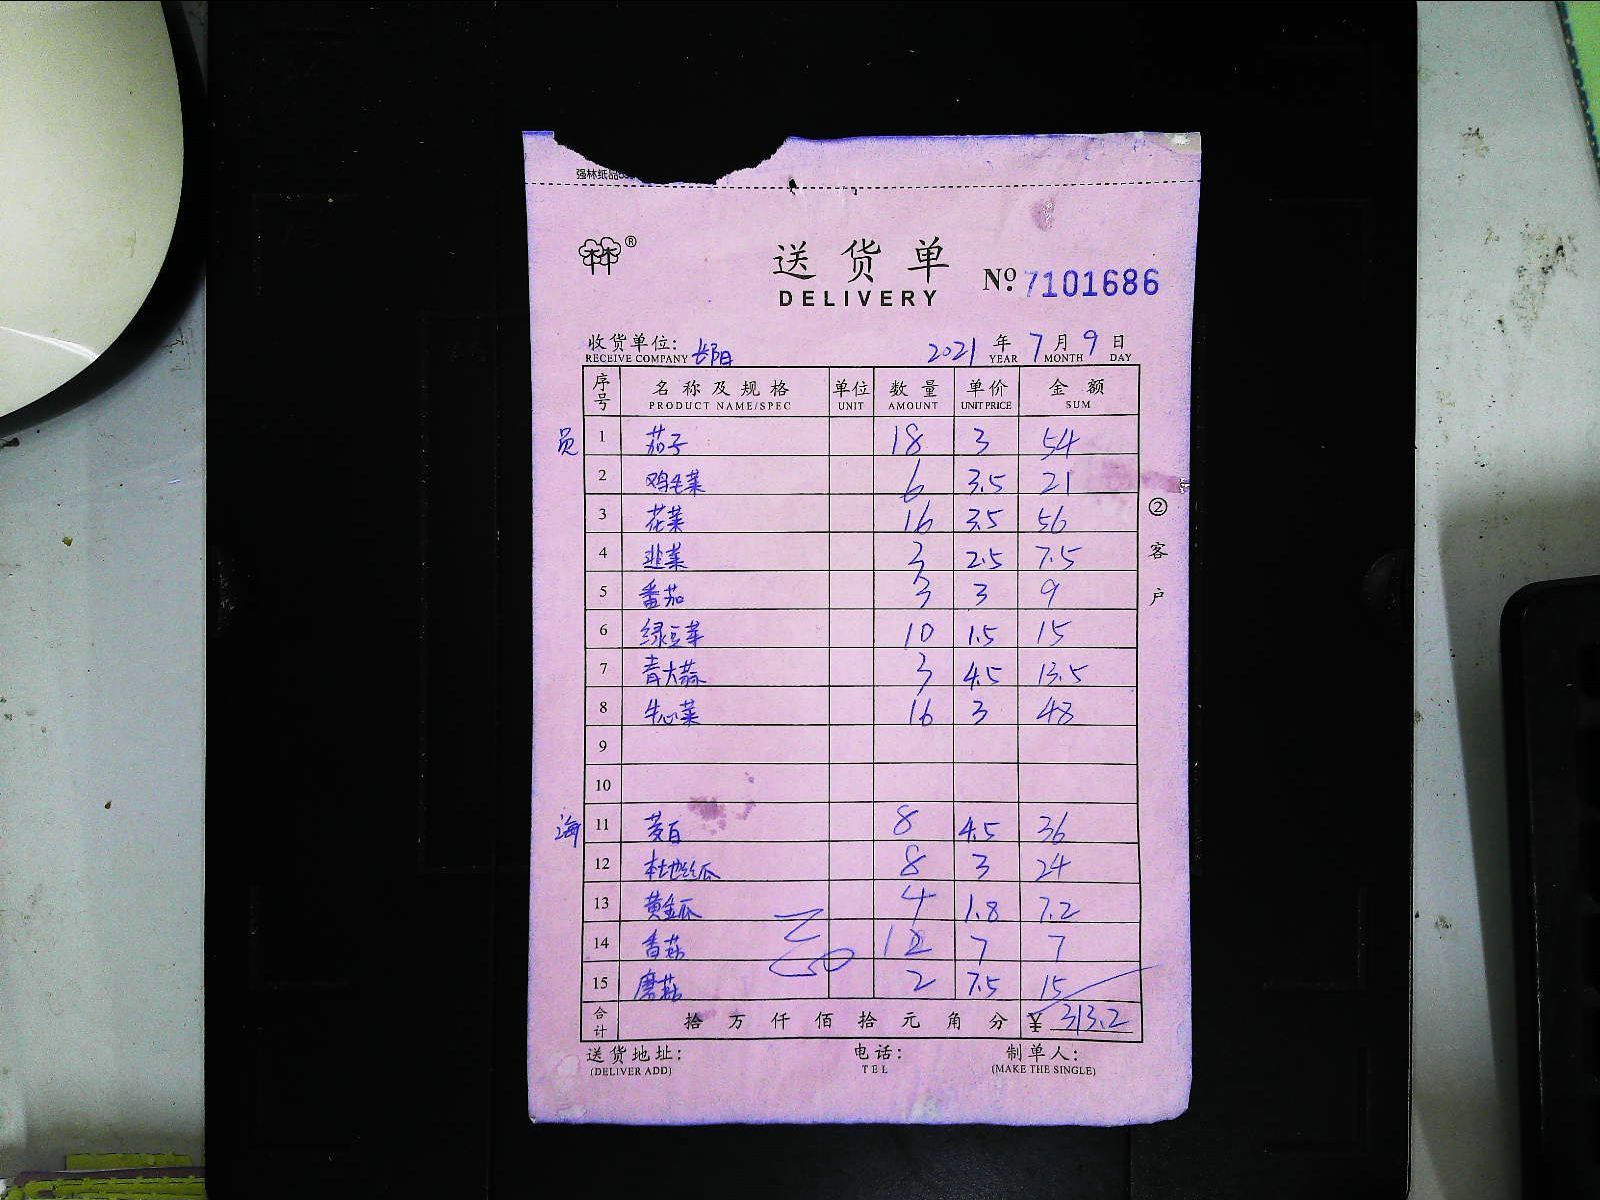 强林纸品
送货单
DELIVERY
№ 7101686
收货单位: 长阳 2021 年 7 月 9 日
RECEIVE COMPANY YEAR MONTH DAY
序号 名称及规格 单位 数量 单价 金额
PRODUCT NAME/SPEC UNIT AMOUNT UNIT PRICE SUM
员 1 茄子 18 3 54
2 鸡毛菜 6 3.5 21
3 花菜 16 3.5 56
4 韭菜 3 2.5 7.5
5 番茄 3 3 9
6 绿豆芽 10 1.5 15
7 青大蒜 3 4.5 13.5
8 牛心菜 16 3 48
9
10
海 11 茭白 8 4.5 36
12 本地丝瓜 8 3 24
13 黄金瓜 4 1.8 7.2
14 香菇 1 7 7
15 蘑菇 2 7.5 15
合计 拾 万 仟 佰 拾 元 角 分 ¥ 313.2
② 客户
送货地址: 电话: 制单人:
(DELIVER ADD) TEL (MAKE THE SINGLE)